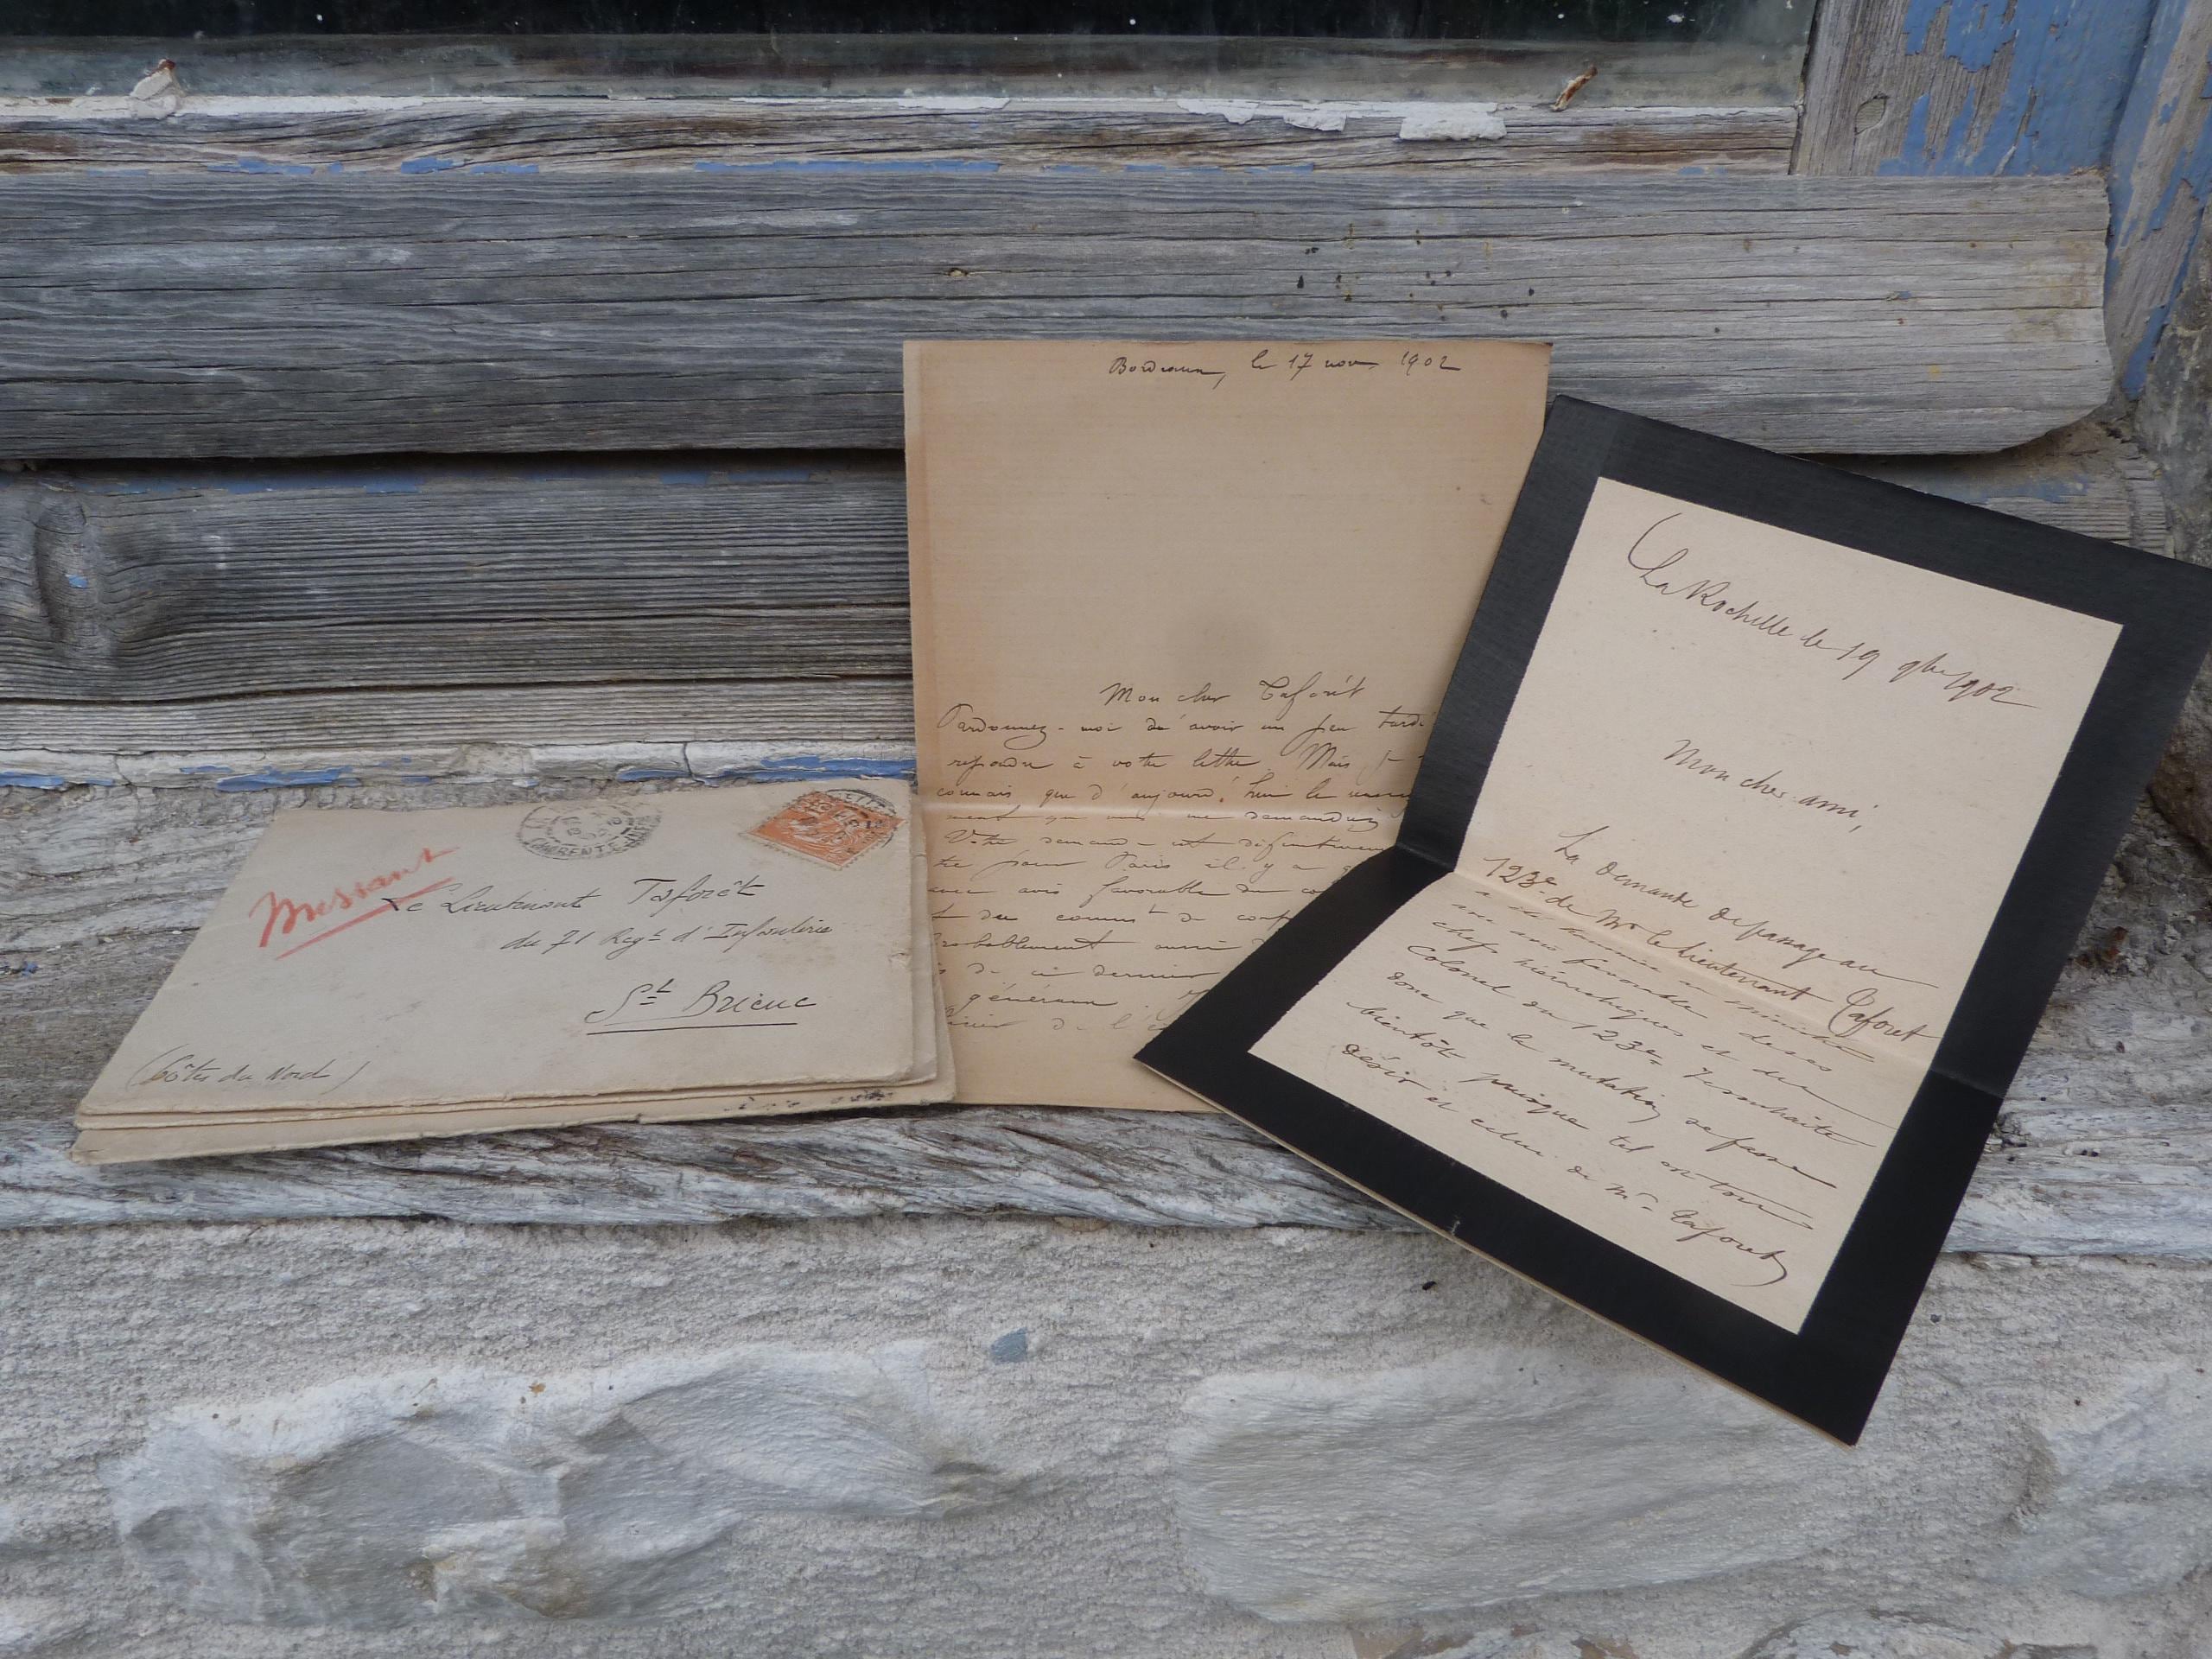 Pressant
Le Lieutenant Taforêt
du 71 Regt d'Infanterie
St Brieuc
(Côtes du Nord)
CHARENTE-INFRE
Bordeaux, le 17 nov 1902
Mon cher Taforêt
Pardonnez-moi d'avoir un peu tardé
répondre à votre lettre. Mais je
connais que d'aujourd'hui le
ment que vous me demandiez
Votre demande est
tie pour Paris il y a
avec avis favorable du
du commt de corps
probablement aussi
de ce dernier
généraux
de l'
La Rochelle le 19 9bre 1902
Mon cher ami,
La demande de passage au
123e de Mr le Lieutenant Taforet
a été transmise au ministre
avec avis favorable de ses
chefs hiérarchiques et du
Colonel du 123e. Je souhaite
donc que la mutation se fasse
bientôt puisque tel est ton
désir et celui de Mr Taforet